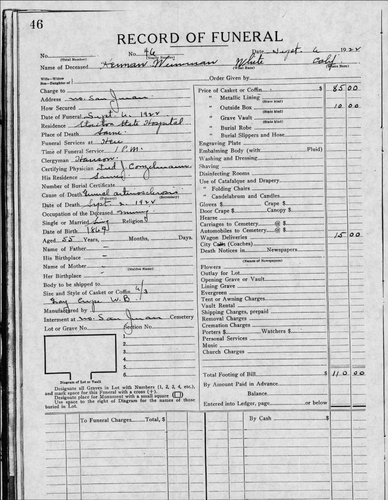 46
RECORD OF FUNERAL
No. 46 Date Sept. 6 1922
Name of Deceased Herman White Calif.
Order Given by
Charge to
Address No. San Juan
How Secured
Date of Funeral Sept. 6, 1922
Residence Stockton State Hospital
Place of Death Same
Funeral Services at Here
Time of Funeral Service 1 P.M.
Clergyman
Certifying Physician
His Residence Same
Number of Burial Certificate
Cause of Death
Date of Death Sept 2, 1922
Occupation of the Deceased mining
Single or Married Religion
Date of Birth 1864
Aged 55 Years, Months, Days
Name of Father
His Birthplace
Name of Mother
Her Birthplace
Body to be shipped to
Size and Style of Casket or Coffin 6/3
Gray Crepe W.B.
Manufactured by
Interment at No. San Juan Cemetery
Lot or Grave No. Section No.
1.
2.
3.
4.
5.
6.
Diagram of Lot or Vault
Designate all Graves in Lot with Numbers (1, 2, 3, 4, etc.),
and mark space for this Funeral with a cross (+).
Designate place for Monument with a small square
Use space to the right of Diagram for names of those
buried in Lot.
Price of Casket or Coffin $ 85 00
" Metallic Lining
" Outside Box 10 00
" Grave Vault
" Burial Robe
" Burial Slippers and Hose
Engraving Plate
Embalming Body (with Fluid)
Washing and Dressing
Shaving
Disinfecting Rooms
Use of Catafalque and Drapery
" Folding Chairs
" Candelabrum and Candles
Gloves $ Crape $
Door Crape $ Canopy $
Hearse
Carriages to Cemetery @ $
Automobiles to Cemetery @ $
Wagon Deliveries 15 00
City Calls (Coaches)
Death Notices in Newspapers
Flowers
Outlay for Lot
Opening Grave or Vault
Lining Grave
Evergreens
Tent or Awning Charges
Vault Rental
Shipping Charges, prepaid
Removal Charges
Cremation Charges
Porters $ Watchers $
Personal Services
Music
Church Charges
Total Footing of Bill $ 110 00
By Amount Paid in Advance
Balance
Entered into Ledger, page or below
To Funeral Charges, Total, $ By Cash $